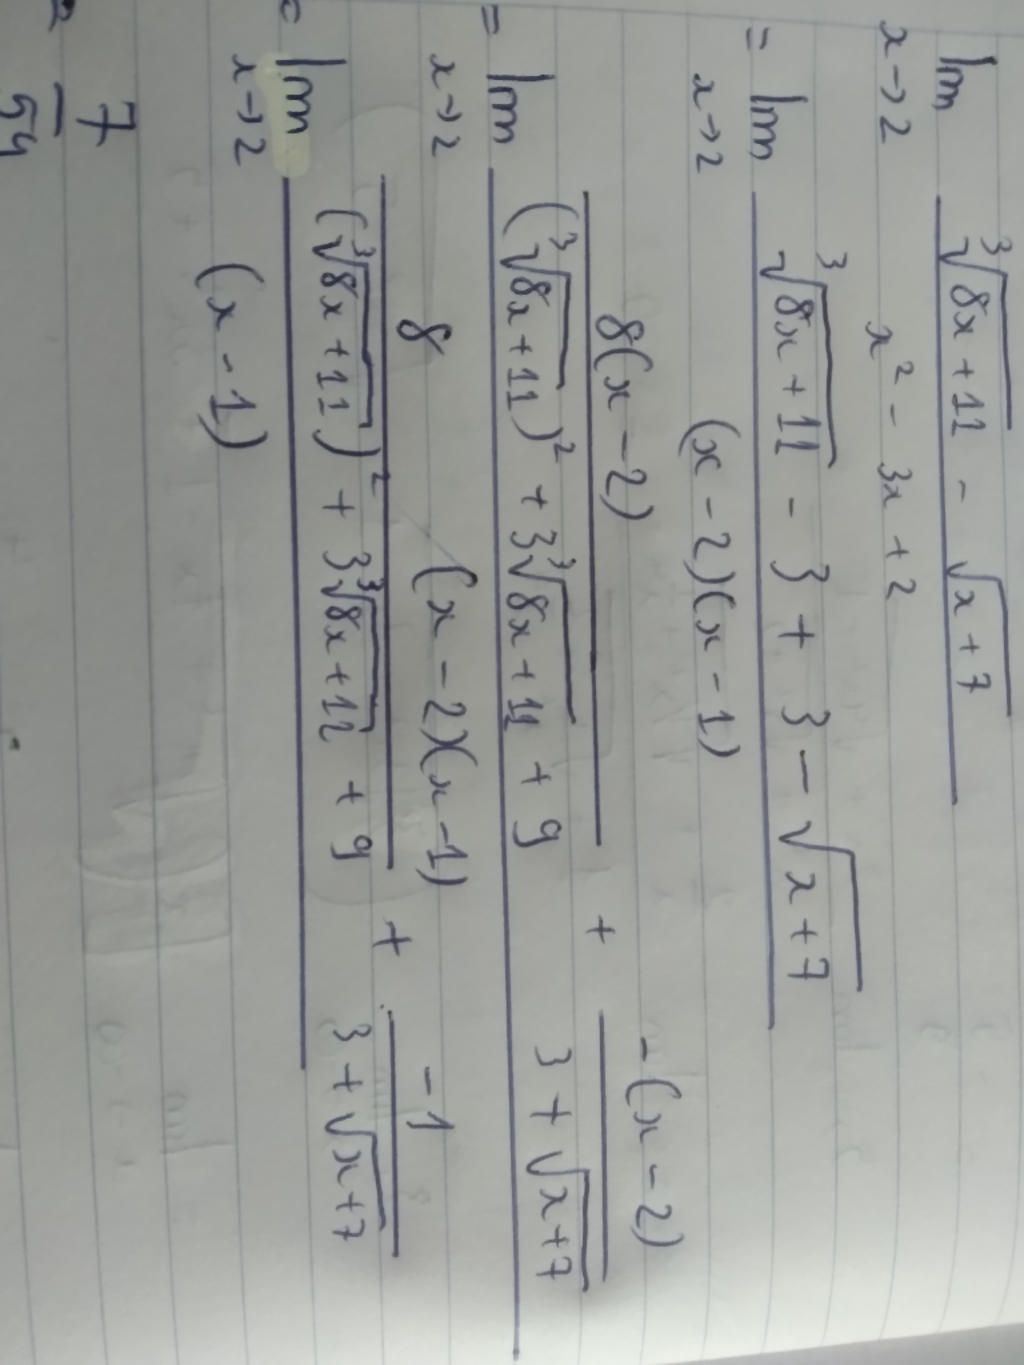 lim x→2 (∛(8x+11) - √(x+7)) / (x² - 3x + 2)
= lim x→2 (∛(8x+11) - 3 + 3 - √(x+7)) / ((x-2)(x-1))
= lim x→2 (8(x-2) / ((∛(8x+11))² + 3∛(8x+11) + 9) + -(x-2) / (3 + √(x+7))) / ((x-2)(x-1))
= lim x→2 (8 / ((∛(8x+11))² + 3∛(8x+11) + 9) + -1 / (3 + √(x+7))) / (x-1)
= 7 / 54